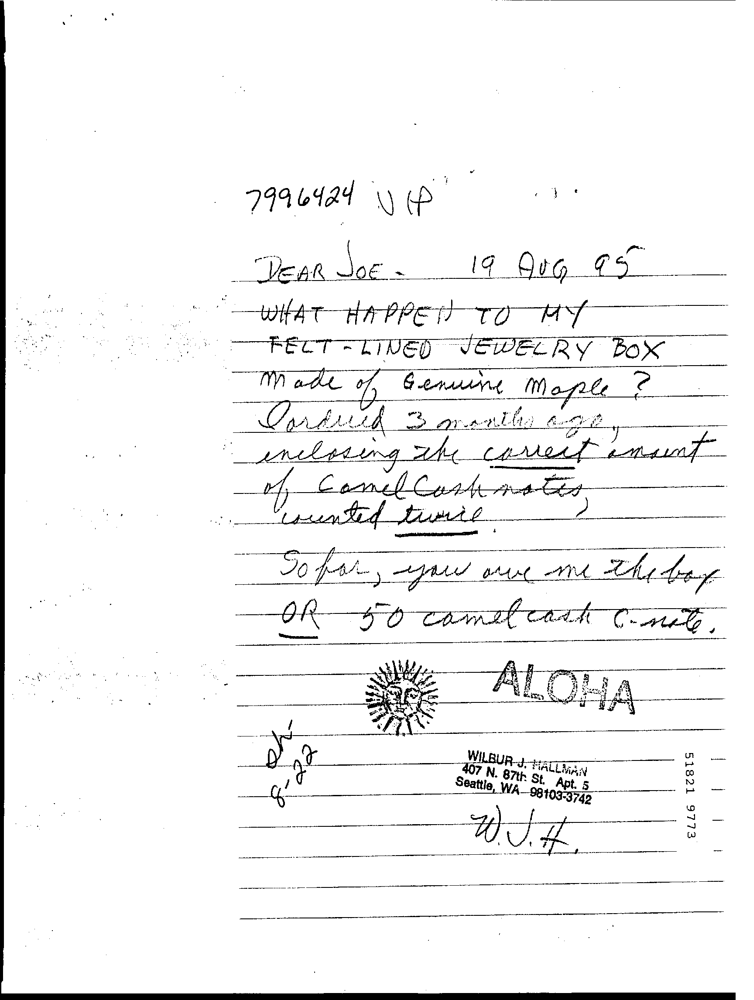 7996424 VIP
DEAR JOE - 19 AUG 95
WHAT HAPPEN TO MY
FELT-LINED JEWELRY BOX
Made of Genuine Maple ?
I ordered 3 months ago,
enclosing the correct amount
of Camel Cash notes,
counted twice
So far, you owe me the box
OR 50 camel cash C-note.
ALOHA
8-22
WILBUR J. HALLMAN
407 N. 87th St. Apt. 5
Seattle, WA 98103-3742
W.J.H.
51821 9773